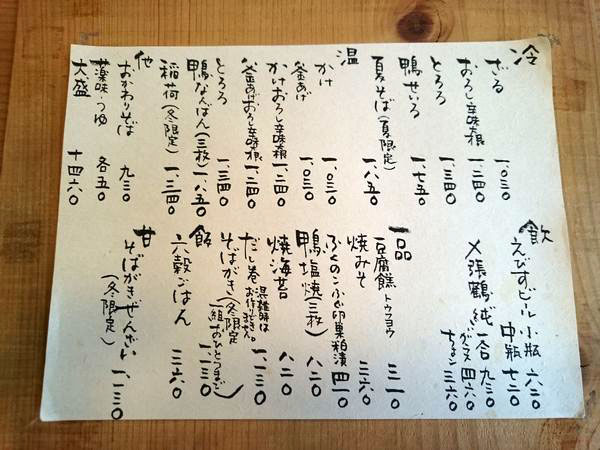 冷
ざる 一、〇三〇
おろし辛味大根 一、二四〇
とろろ 一、三四〇
鴨せいろ 一、七五〇
夏そば(夏限定) 一、八五〇
温
かけ 一、〇三〇
釜あげ 一、〇三〇
かけおろし辛味大根 一、二四〇
釜あげおろし辛味大根 一、二四〇
とろろ 一、三四〇
鴨なんばん(三枚) 一、八五〇
稲荷(冬限定) 一、三四〇
他
おかわりそば 九三〇
薬味・つゆ 各五〇
大盛 十四六〇
飲
えびすビール 小瓶 六二〇
中瓶 七二〇
〆張鶴 純 一合 九三〇
グラス 四六〇
ちょこ 三六〇
一品
豆腐餻 トウフヨウ 三一〇
焼みそ 三六〇
ふぐのこふぐ卵巣粕漬 四一〇
鴨塩焼(三枚) 八二〇
焼海苔 八二〇
だし巻 混雑時は。お作りできません 一、一三〇
そばがき(冬限定 一組おひとつまで) 一、一三〇
飯
六穀ごはん 三六〇
甘
そばがきぜんざい 一、一三〇
(冬限定)